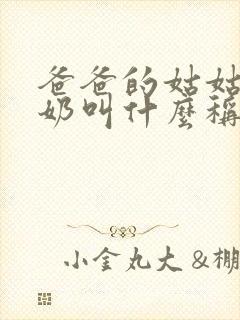 爸爸的姑姑
奶叫什麼稱
小金丸大 &棚